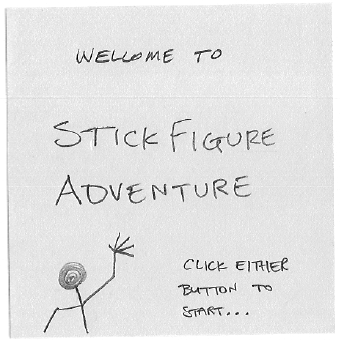 WELCOME TO
STICK FIGURE
ADVENTURE
CLICK EITHER
BUTTON TO
START...